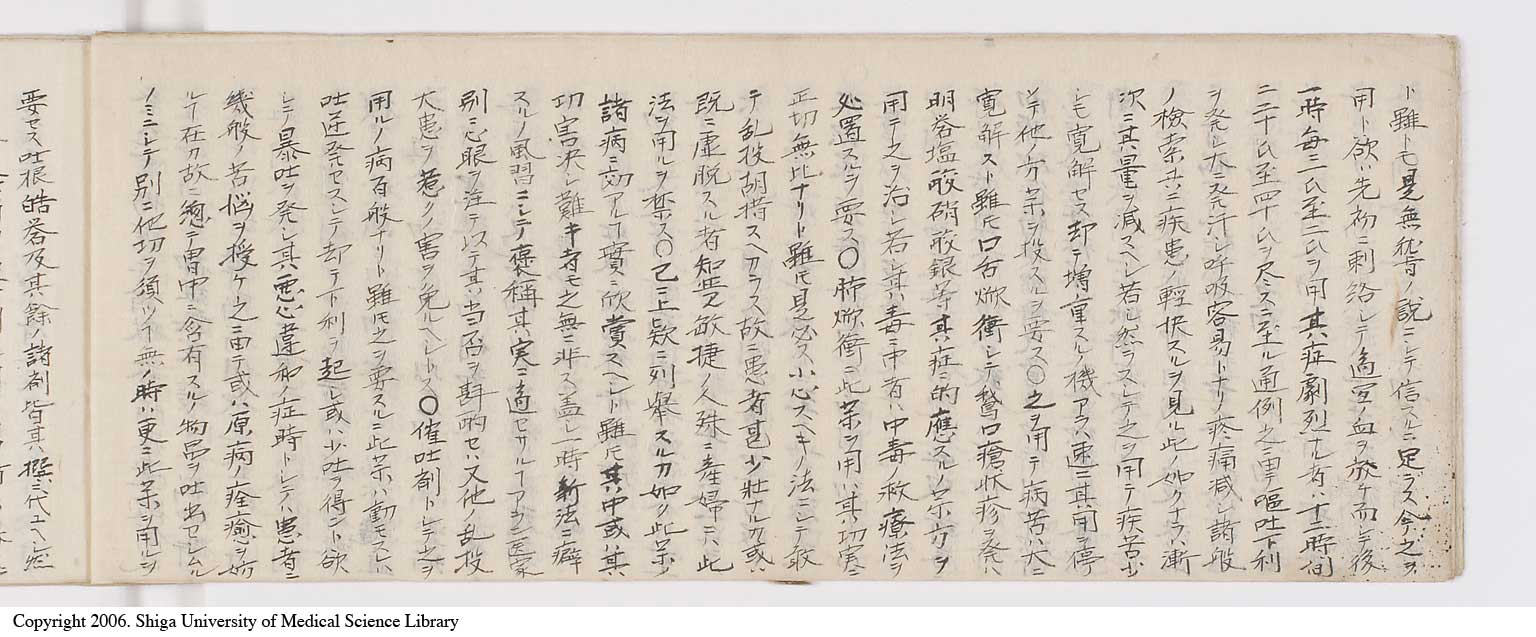 ト雖トモ是無稽ノ説ニシテ信スルニ足ラス今之ヲ
用ト欲ハ先初ニ刺絡シテ適宜ノ血ヲ放ケ而シテ後
一時毎ニ一氏至二氏ヲ用其症劇烈ナル者ハ十二時間
ニ二十氏至四十氏ヲ尽スニ至ル通例之ニ由テ嘔吐下利
ヲ発シ大ニ発汗シ呼吸容易トナリ疼痛減シ諸般
ノ検索共ニ疾患ノ軽快スルヲ見ル此ノ如クナラハ漸
次ニ其量ヲ減スヘシ若シ然ラスシテ之ヲ用テ疾苦少
シモ寛解セス却テ増重スルノ機アラハ速ニ其用ヲ停
シテ他ノ方薬ヲ投スルヲ要ス〇之ヲ用テ病苦ハ大ニ
寛解スト雖トモ口舌焮衝シテ鵞口瘡状疹ヲ発ハ
明礬塩酸硝酸銀等其症ニ的應スルノ薬方ヲ
用テ之ヲ治シ若シ其毒ニ中者ハ中毒ノ救療法ヲ
処置スルヲ要ス〇肺焮衝ニ此薬ヲ用ハ其功実ニ
正切無比ナリト雖トモ是必ス小心スヘキノ法ニシテ敢
テ乱投胡措スヘカラス故ニ患者甚少壮ナルカ或ハ
既ニ虚脱スル者知覚敏捷ノ人殊ニ産婦ニハ此
法ヲ用ルヲ禁ス〇已ニ上款ニ列挙スルカ如ク此薬ハ
諸病ニ効アルヿ實ニ欣賞スヘシト雖トモ其中或ハ其
功害決シ難キ者モ之無ニ非ス盖シ一時新法ニ癖
スルノ風習ニシテ褒称其実ニ過セサルヿアラン医家
別ニ心眼ヲ注テ以テ其当否ヲ斟酌セハ又他ノ乱投
大患ヲ惹クノ害ヲ免ルヘシトス〇催吐剤トシテ之ヲ
用ルノ病百般ナリト雖トモ之ヲ要スルニ此薬ハ動モスレハ
吐逆発セスシテ却テ下利ヲ起シ或ハ少吐ヲ得ント欲
シテ暴吐ヲ発シ其悪心違和ノ症時トシテハ患者ニ
幾般ノ苦悩ヲ授ケ之ニ由テ或ハ原病ノ痊癒ヲ妨
ルヿ在リ故ニ總テ胃中ニ含有スルノ物品ヲ吐出セシムル
ノミニシテ別ニ他切ヲ須ツヿ無ノ時ハ更ニ此薬ヲ用ルヲ
要セス吐根皓礬及其餘ノ諸剤皆其撰ニ代エヘシ然
Copyright 2006. Shiga University of Medical Science Library